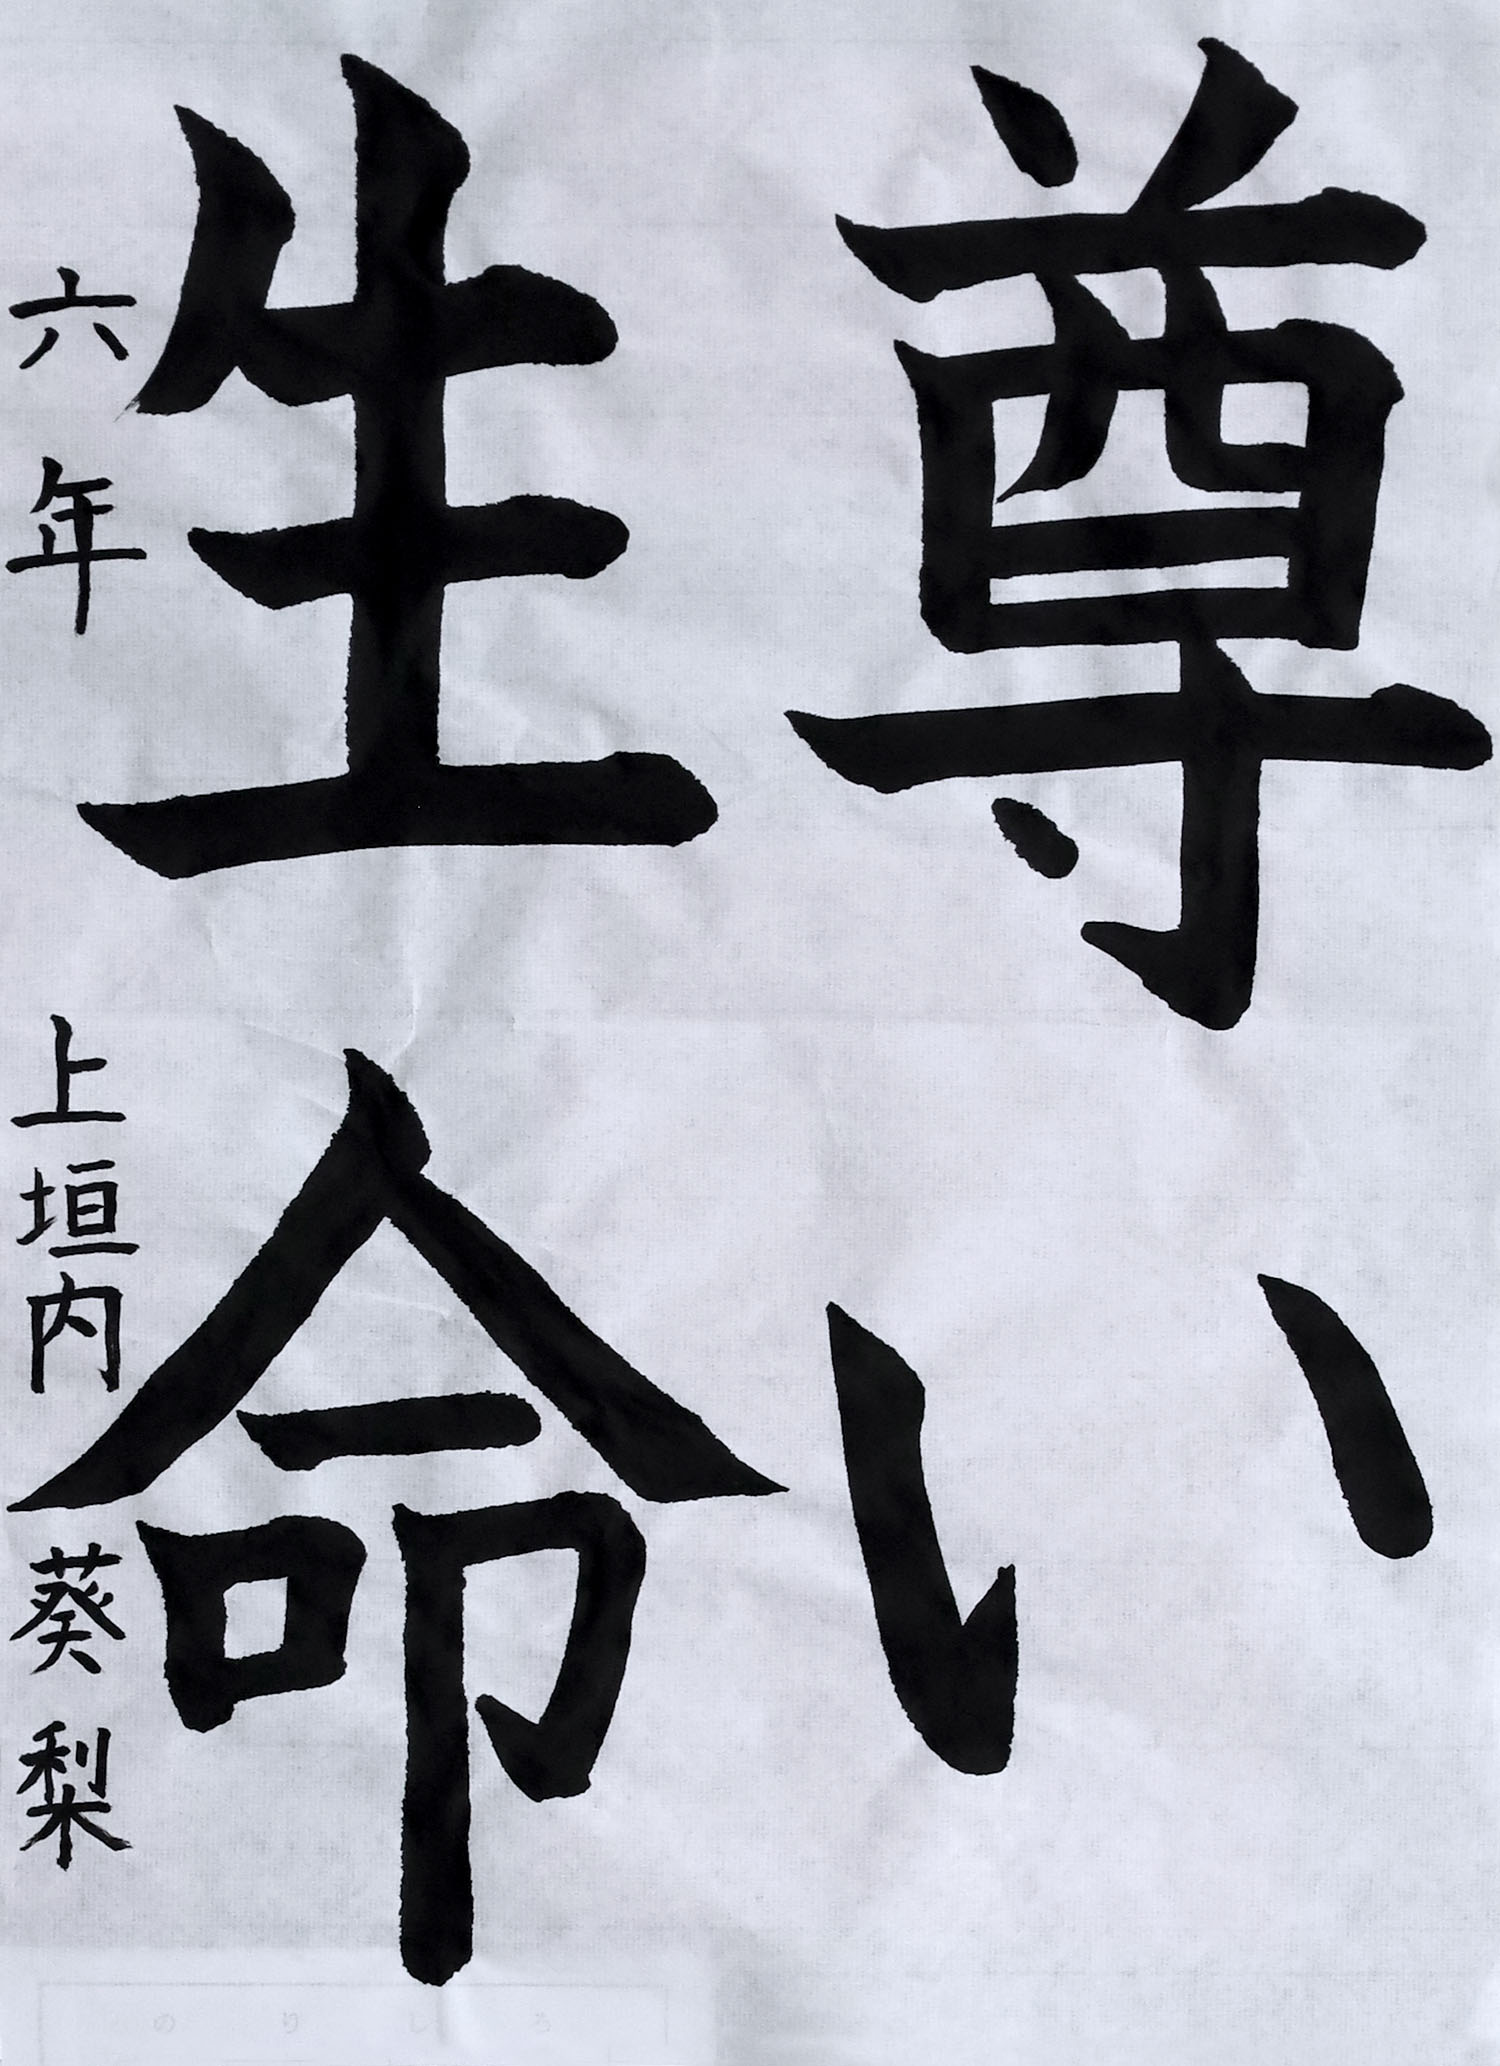 尊い
生命
六年 上垣内 葵梨
のりしろ